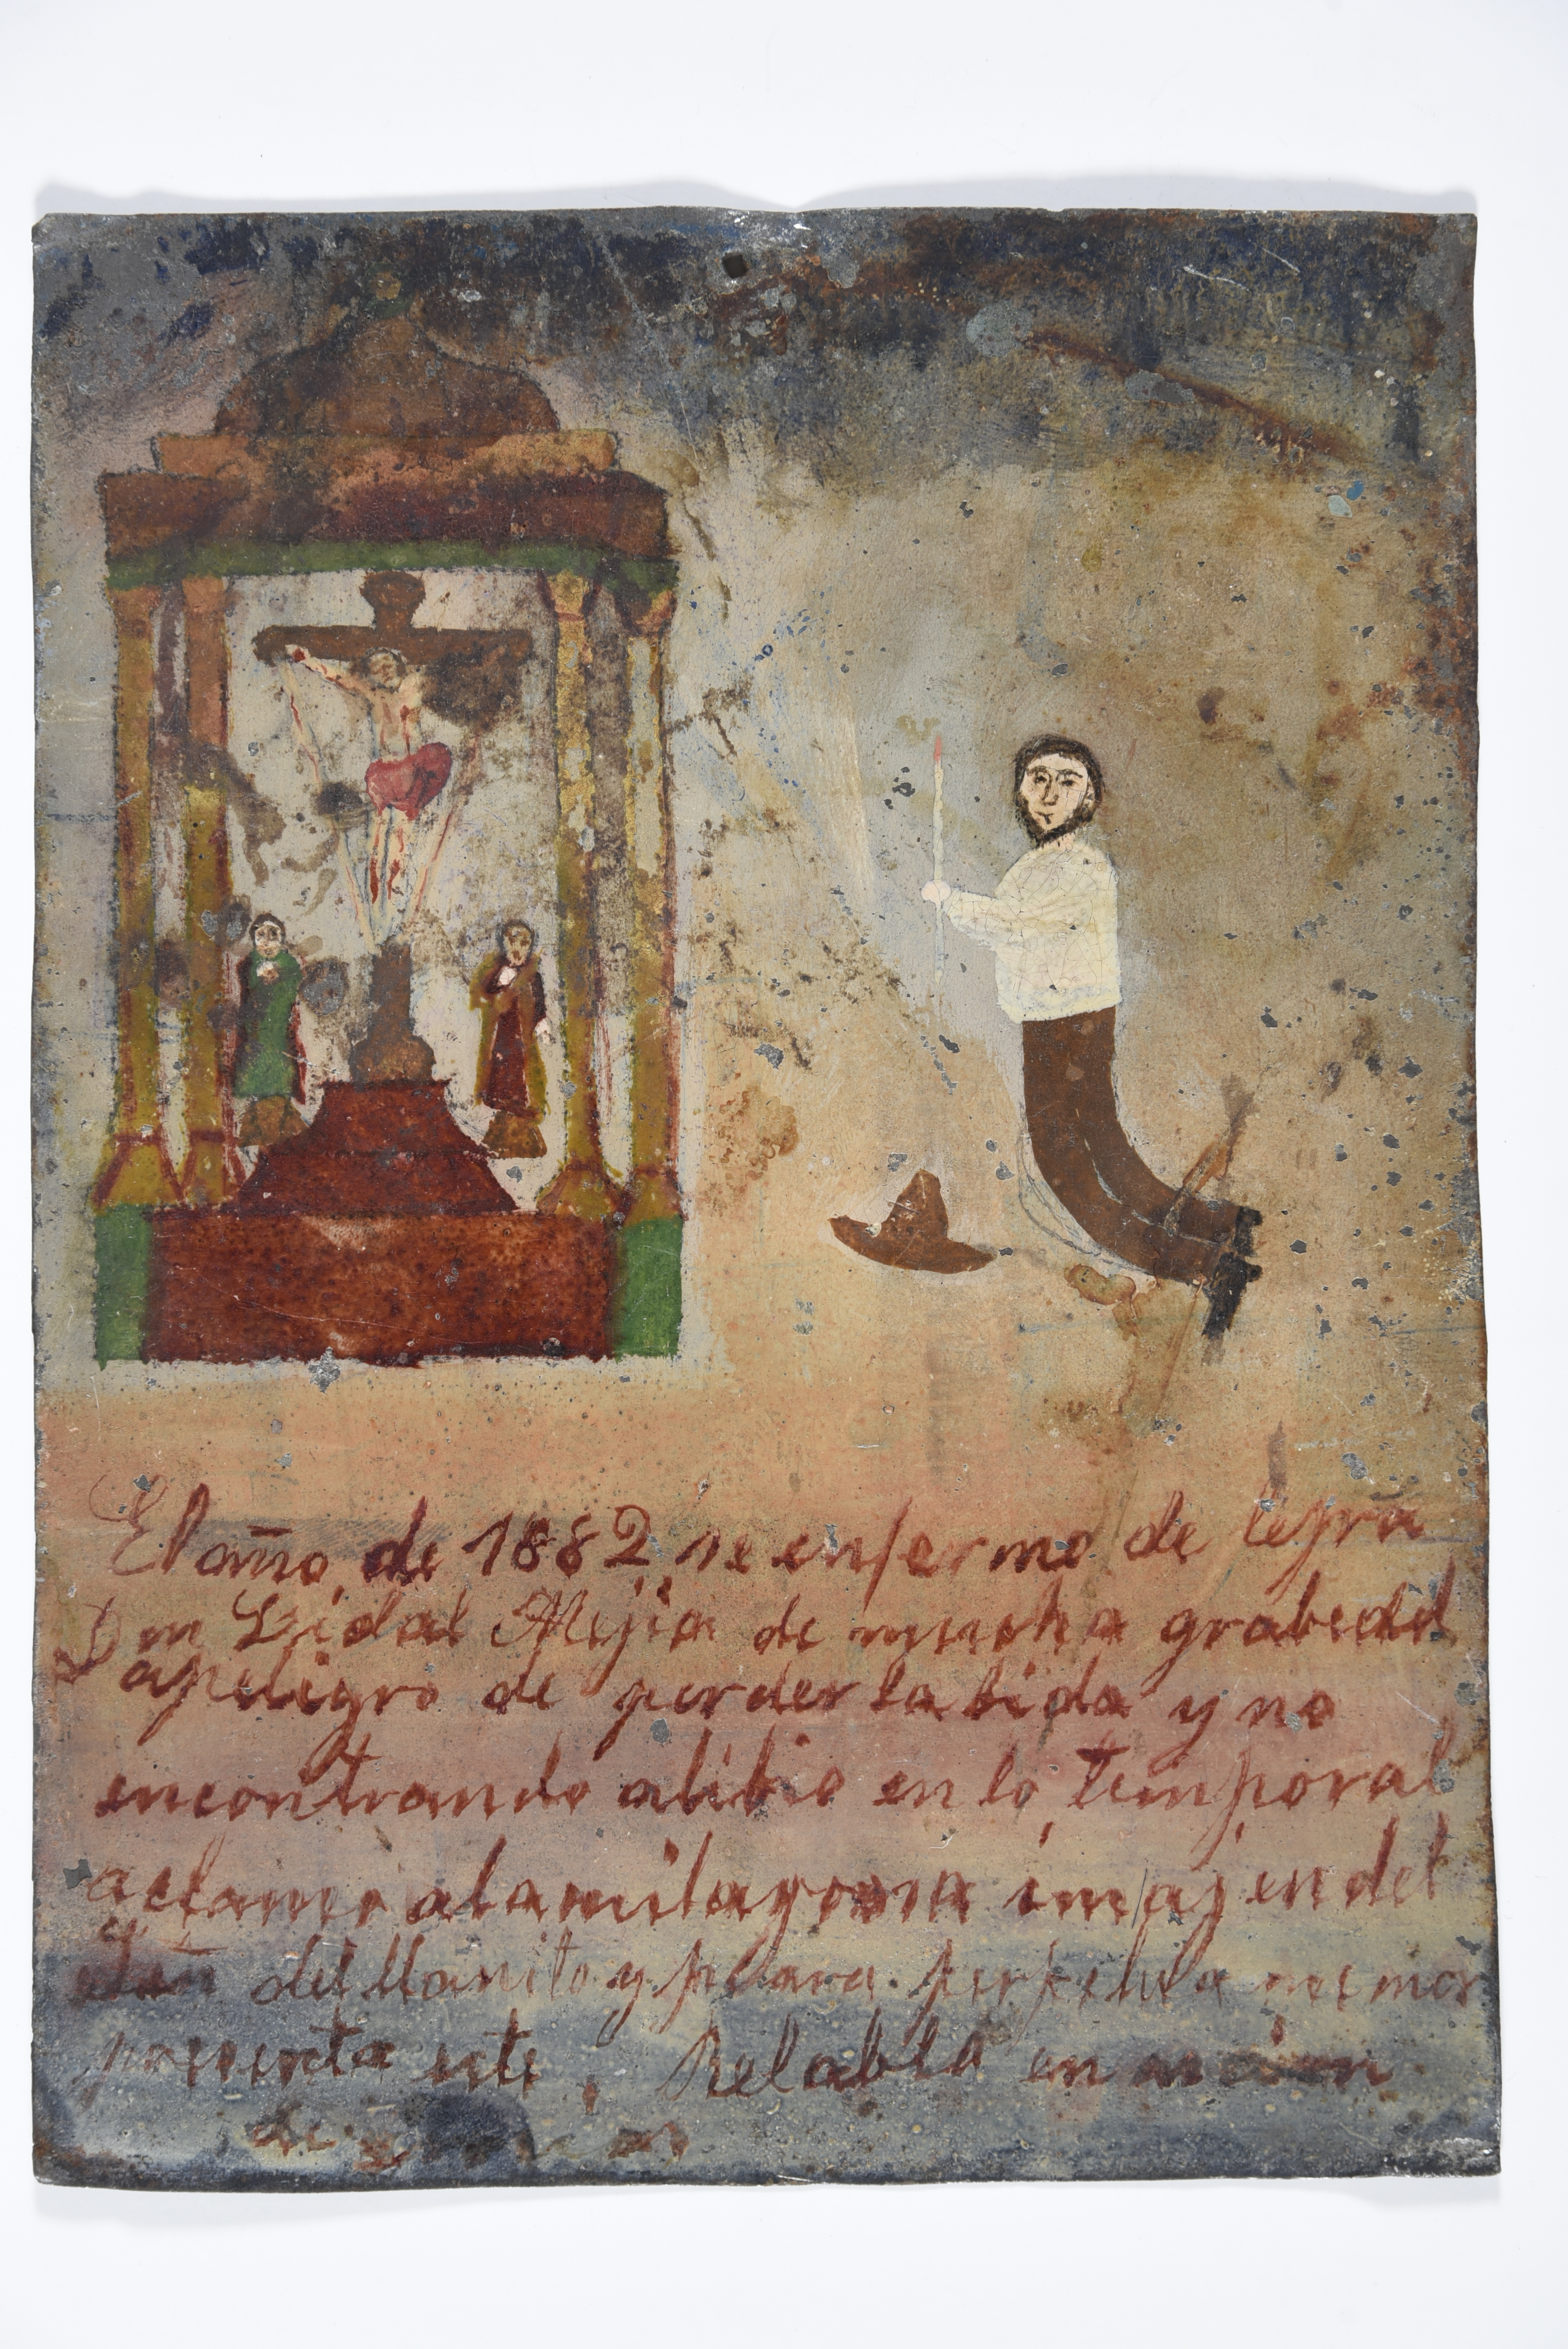 El año de 1882 se enfermo de lepra
Don Vidal Mejia de mucha grabedad
apeligro de perder la bida y no
encontrando alibio en lo temporal
aclamo alamilagrosa imajen del
Señ del llanito y para perpetua memor
presenta este Retabla en acsion
de